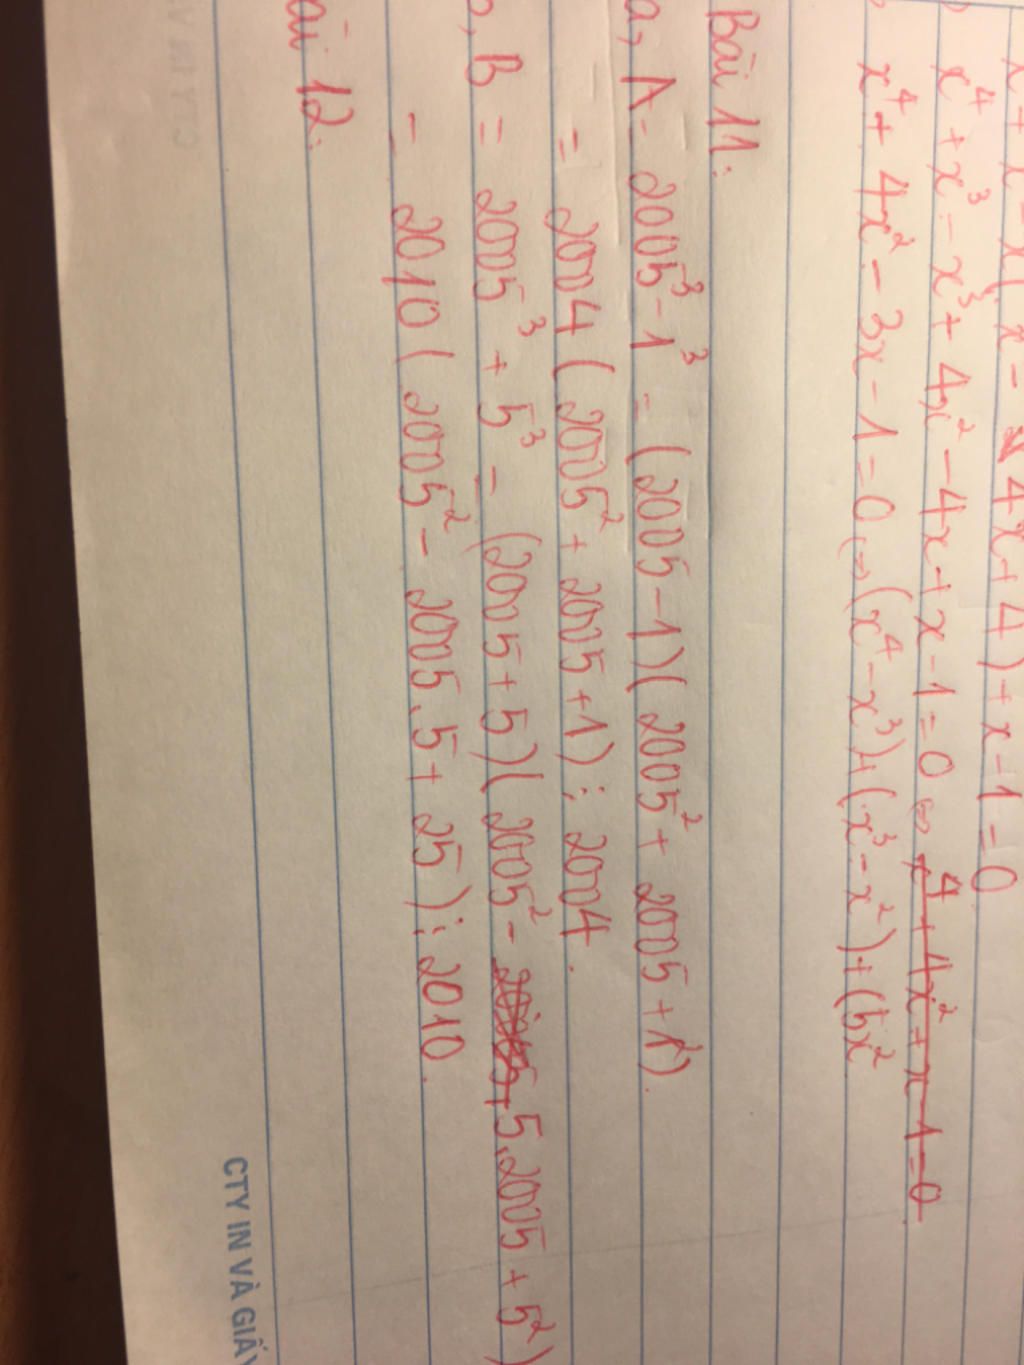 x⁴ + x³ - x³ + 4x² - 4x + x - 1 = 0 ⇔ x⁴ + 4x² + x - 1 = 0
x⁴ + 4x² - 3x - 1 = 0 ⇔ (x⁴ - x³) + (x³ - x²) + (5x²
Bài 11.
a, A = 2005³ - 1³ = (2005 - 1)(2005² + 2005 + 1²).
= 2004 (2005² + 2005 + 1) ⋮ 2004.
B = 2005³ + 5³ = (2005 + 5)(2005² - 5.2005 + 5²)
= 2010 (2005² - 2005.5 + 25) ⋮ 2010.
ài 12.
CTY IN VÀ GIẤY